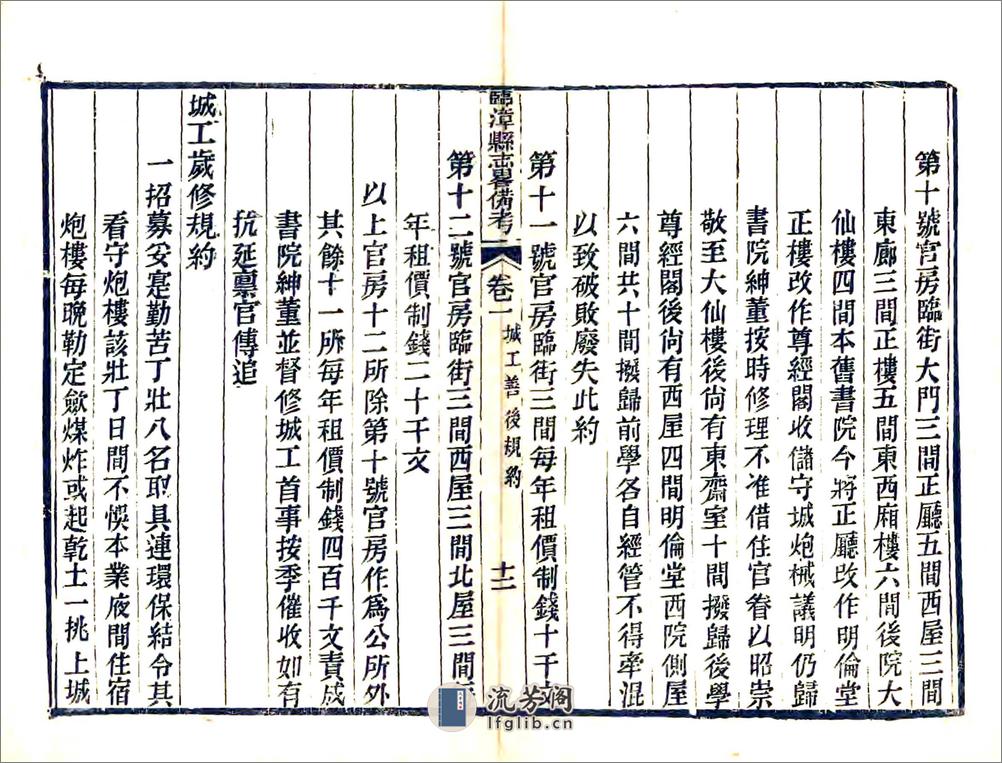 第十號官房臨街大門三間正廳五間西屋三間
東廊三間正樓五間東西廂樓六間後院大
仙樓四間本舊書院今將正廳改作明倫堂
正樓改作尊經閣收儲守城炮械議明仍歸
書院紳董按時修理不准借住官眷以昭崇
敬至大仙樓後尙有東齋室十間撥歸後學
尊經閣後尙有西屋四間明倫堂西院側屋
六間共十間撥歸前學各自經管不得牽混
以致破敗廢失此約
第十一號官房臨街三間每年租價制錢十千文
臨漳縣志畧備考
卷一
城工善後規約
十二
第十二號官房臨街三間西屋三間北屋三間
年租價制錢二十千文
以上官房十二所除第十號官房作爲公所外
其餘十一所每年租價制錢四百千文責成
書院紳董並督修城工首事按季催收如有
抗延禀官傳追
城工歲修規約
一招募妥寔勤苦丁壯八名取具連環保結令其
看守炮樓該壯丁日間不悞本業夜間住宿
炮樓每晚勒定斂煤炸或起乾土一挑上城
流芳阁
lfglib.cn